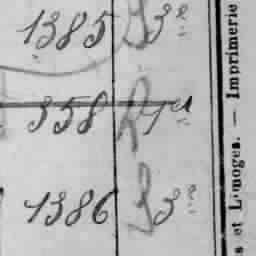 1385 3e
358 1er
1386 3e
s et Limoges. — Imprimerie